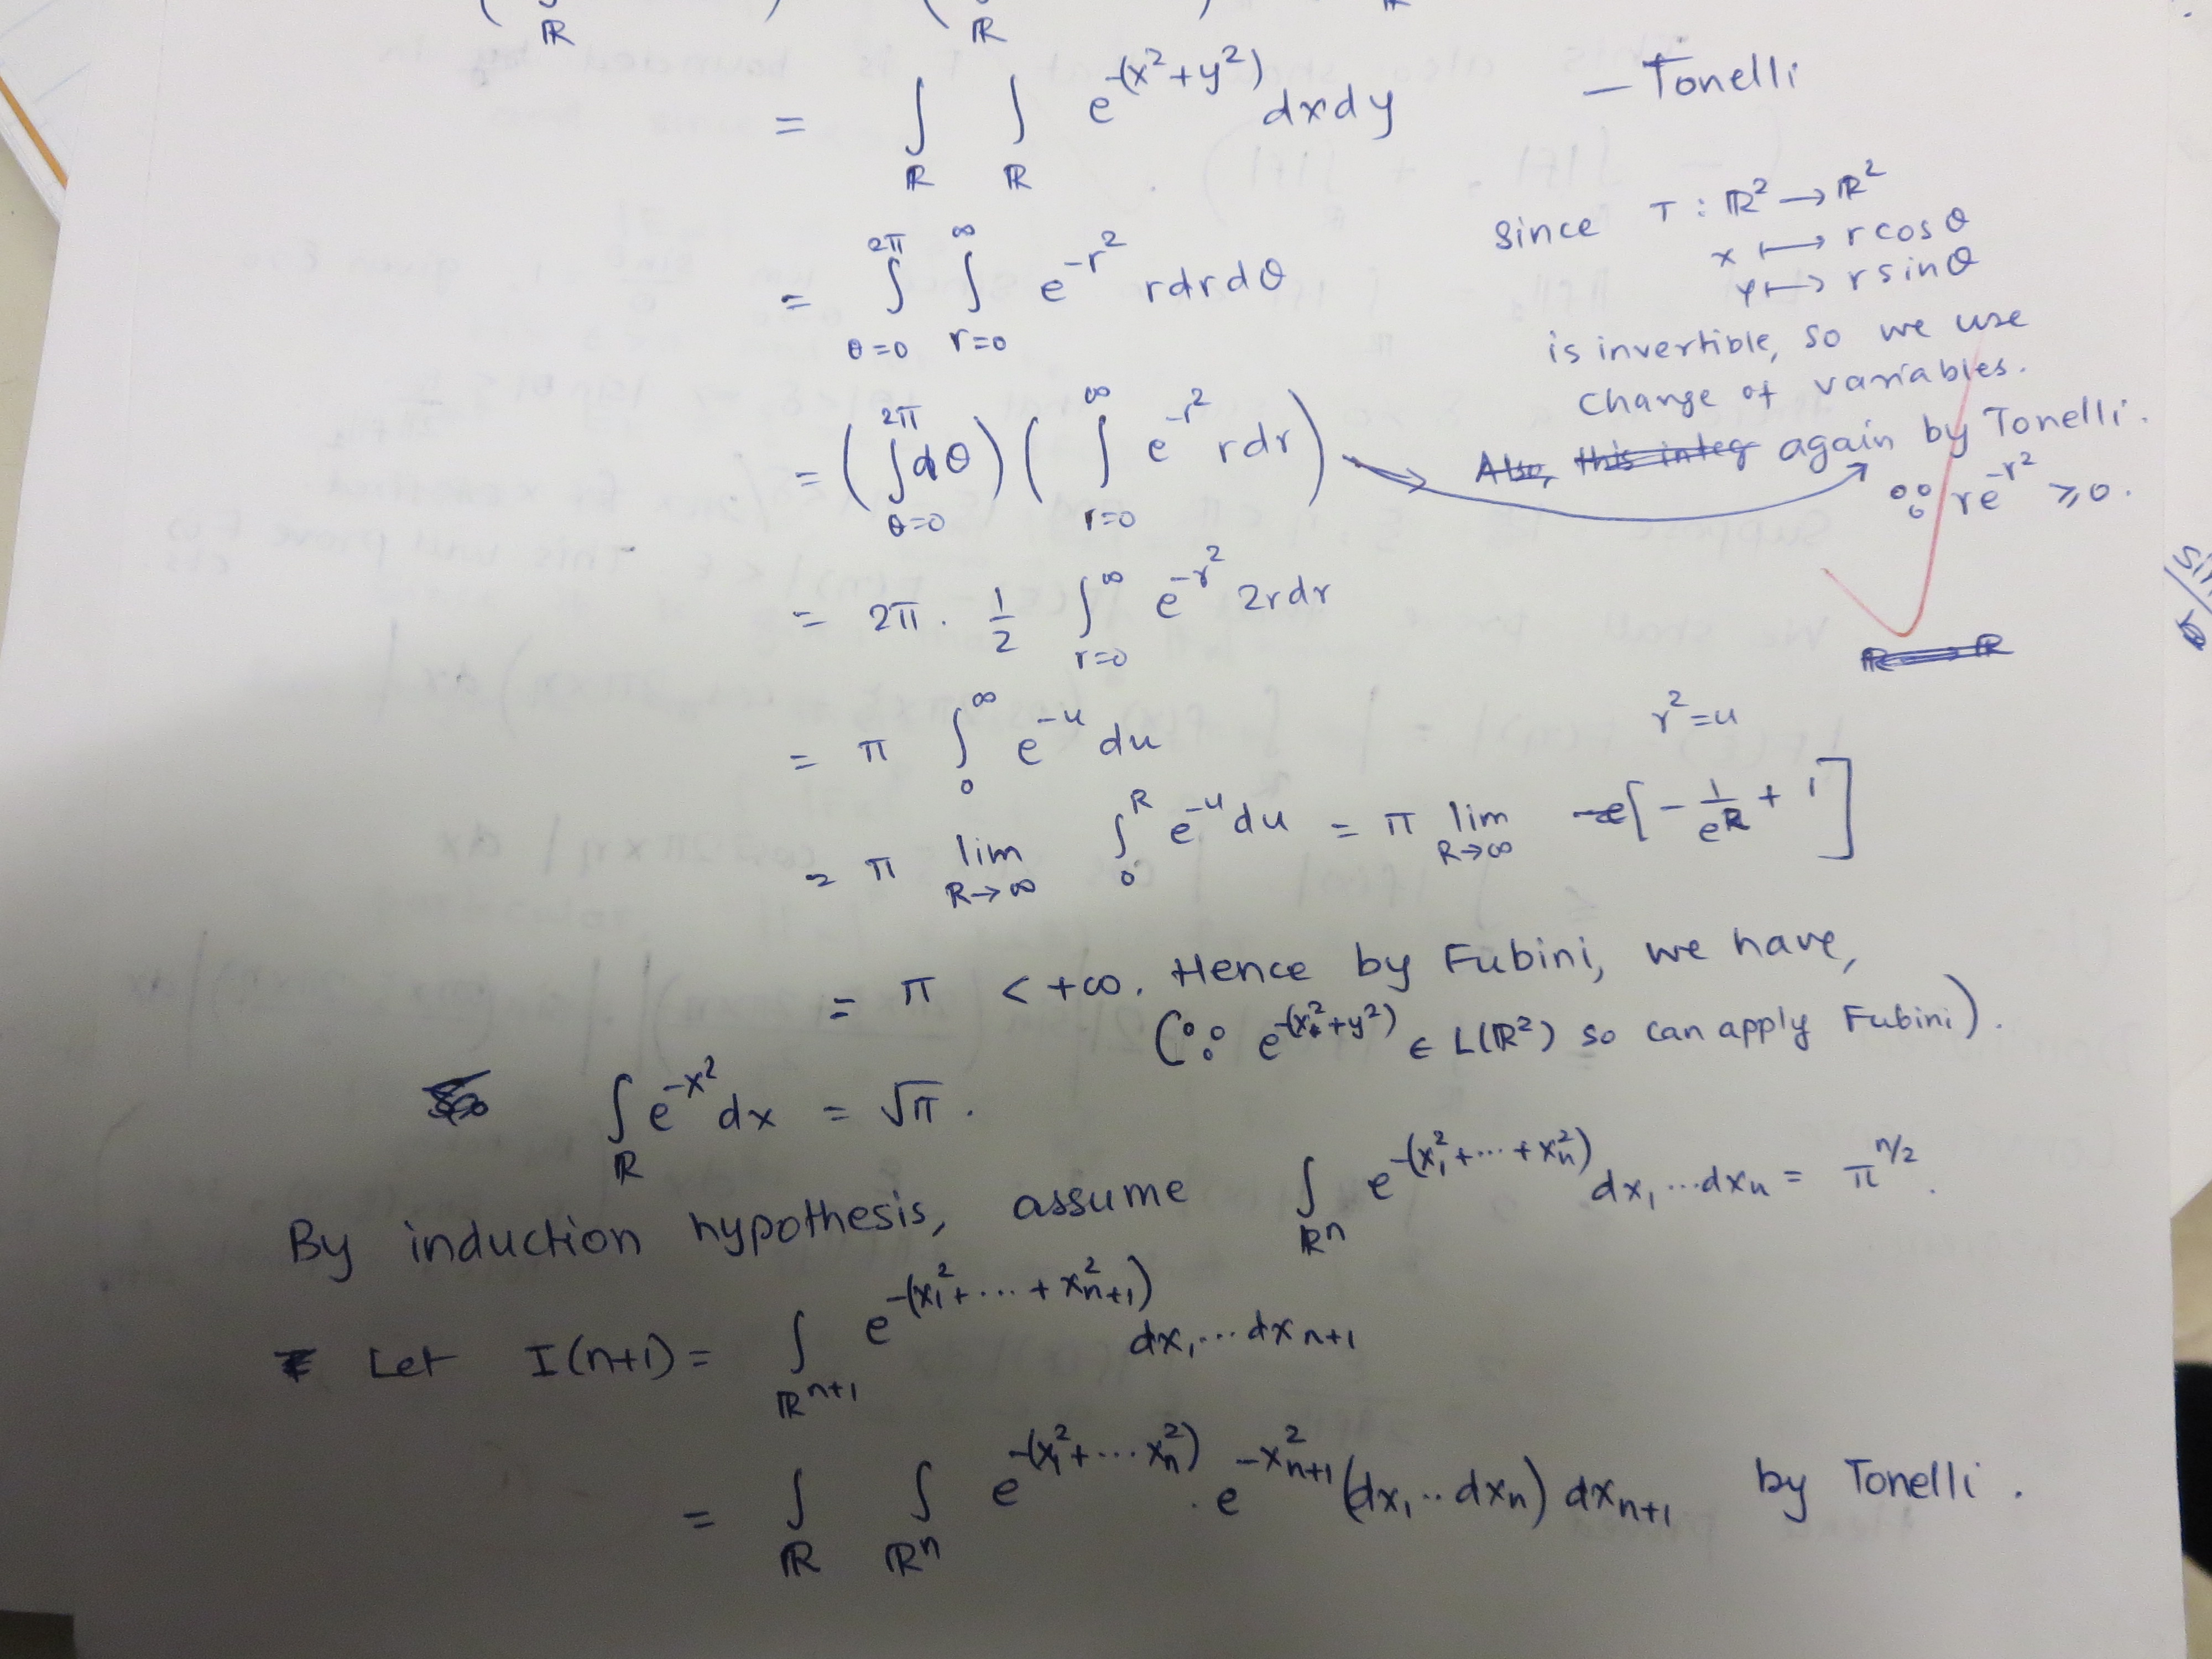 = ∫_ℝ ∫_ℝ e^{-(x²+y²)} dxdy — Tonelli
= ∫_{θ=0}^{2π} ∫_{r=0}^{∞} e^{-r²} rdrdθ
since T : ℝ² → ℝ²
x ↦ r cosθ
y ↦ r sinθ
is invertible, so we use
change of variables.
= (∫_{θ=0}^{2π} dθ) (∫_{r=0}^{∞} e^{-r²} rdr) → again by Tonelli.
∵ re^{-r²} ≥ 0.
= 2π · 1/2 ∫_{r=0}^{∞} e^{-r²} 2rdr
= π ∫_0^∞ e^{-u} du r² = u
= π lim_{R→∞} ∫_0^R e^{-u} du = π lim_{R→∞} [-1/e^R + 1]
= π < +∞. Hence by Fubini, we have,
(∵ e^{-(x²+y²)} ∈ L(ℝ²) so can apply Fubini).
∫_ℝ e^{-x²} dx = √π .
By induction hypothesis, assume ∫_{ℝⁿ} e^{-(x₁²+...+xₙ²)} dx₁...dxₙ = π^{n/2} .
Let I(n+1) = ∫_{ℝ^{n+1}} e^{-(x₁²+...+x_{n+1}²)} dx₁...dx_{n+1}
= ∫_ℝ ∫_{ℝⁿ} e^{-(x₁²+...xₙ²)} . e^{-x_{n+1}²} (dx₁..dxₙ) dx_{n+1} by Tonelli .